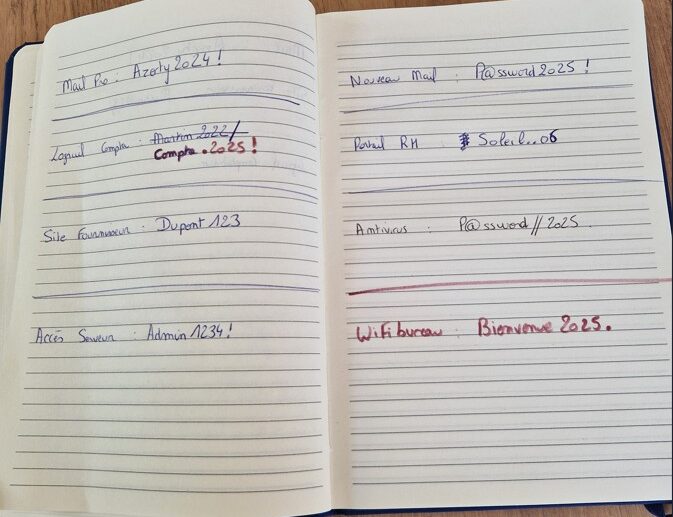 Mail Pro : Azerty 2024!
Logiciel Compta : Martin 2022/
Compta.2025!
Site Fournisseur : Dupont 123
Accès Serveur : Admin 1234!
Nouveau Mail : P@ssword 2025!
Portail RH Soleil..06
Antivirus : P@ssword//2025.
WiFi bureau : Bienvenue 2025.